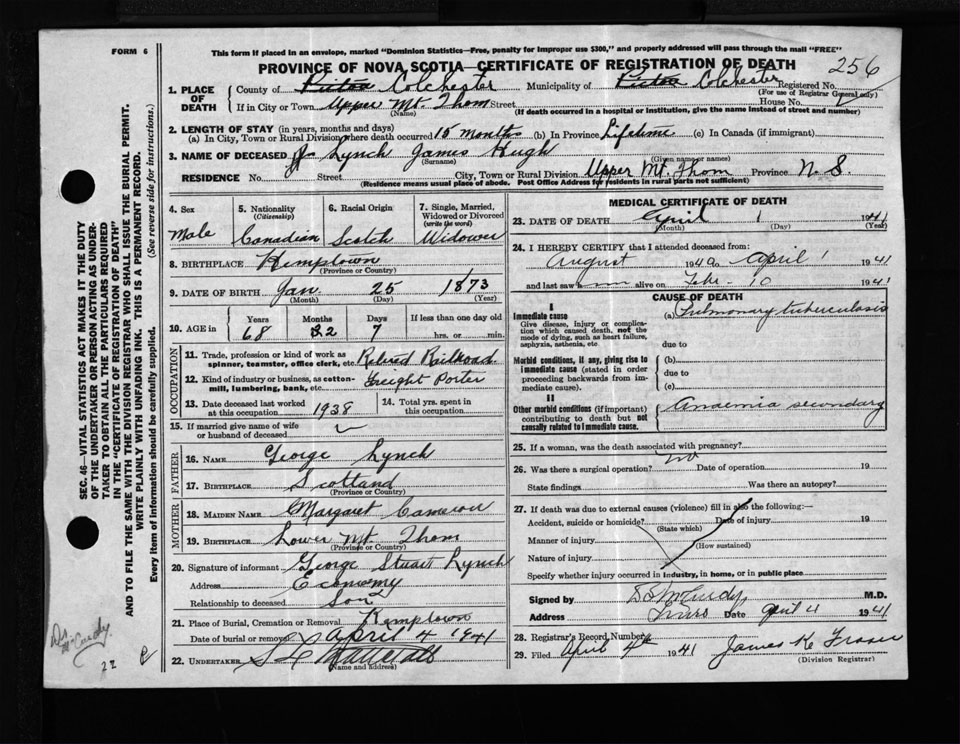 FORM 6
This form if placed in an envelope, marked "Dominion Statistics—Free, penalty for improper use $300," and properly addressed will pass through the mail "FREE"
PROVINCE OF NOVA SCOTIA—CERTIFICATE OF REGISTRATION OF DEATH
256
1. PLACE OF DEATH
County of Pictou Colchester Municipality of Pictou Colchester Registered No.
(For use of Registrar General only)
If in City or Town Upper Mt. Thom Street House No.
(Name) (If death occurred in a hospital or institution, give the name instead of street and number)
2. LENGTH OF STAY (in years, months and days)
(a) In City, Town or Rural Division where death occurred 15 months (b) In Province Lifetime (c) In Canada (if immigrant)
3. NAME OF DECEASED Lynch James Hugh
(Surname) (Given name or names)
RESIDENCE No. Street City, Town or Rural Division Upper Mt. Thom Province N. S.
(Residence means usual place of abode. Post Office Address for residents in rural parts not sufficient)
4. Sex
Male
5. Nationality
(Citizenship)
Canadian
6. Racial Origin
Scotch
7. Single, Married, Widowed or Divorced
(write the word)
Widower
8. BIRTHPLACE Kemptown
(Province or Country)
9. DATE OF BIRTH Jan. 25 1873
(Month) (Day) (Year)
10. AGE in
Years Months Days If less than one day old
68 2 7 hrs. or min.
OCCUPATION
11. Trade, profession or kind of work as spinner, teamster, office clerk, etc. Retired Railroad
12. Kind of industry or business, as cotton-mill, lumbering, bank, etc. Freight Porter
13. Date deceased last worked at this occupation 1938
14. Total yrs. spent in this occupation
15. If married give name of wife or husband of deceased
FATHER
16. NAME George Lynch
17. BIRTHPLACE Scotland
(Province or Country)
MOTHER
18. MAIDEN NAME Margaret Cameron
19. BIRTHPLACE Lower Mt. Thom
(Province or Country)
20. Signature of informant George Stuart Lynch
Address Economy
Relationship to deceased Son
21. Place of Burial, Cremation or Removal Kemptown
Date of burial or removal April 4 1941
22. UNDERTAKER
(Name and address)
MEDICAL CERTIFICATE OF DEATH
23. DATE OF DEATH April 1 1941
(Month) (Day) (Year)
24. I HEREBY CERTIFY that I attended deceased from:
August 1940 to April 1 1941
and last saw him alive on Feb. 10 1941
CAUSE OF DEATH
I
Immediate cause
Give disease, injury or complication which caused death, not the mode of dying, such as heart failure, asphyxia, asthenia, etc.
(a) Pulmonary tuberculosis
due to
Morbid conditions, if any, giving rise to immediate cause (stated in order proceeding backwards from immediate cause).
(b)
due to
(c)
II
Other morbid conditions (if important) contributing to death but not causally related to immediate cause.
Anaemia secondary
25. If a woman, was the death associated with pregnancy?
26. Was there a surgical operation? no Date of operation 19
State findings Was there an autopsy?
27. If death was due to external causes (violence) fill in also the following:—
Accident, suicide or homicide? Date of injury 19
(State which)
Manner of injury
(How sustained)
Nature of injury
Specify whether injury occurred in industry, in home, or in public place
Signed by McCurdy M.D.
Address Truro Date April 4 1941
28. Registrar's Record Number
29. Filed April 4th 1941 James K. Fraser
(Division Registrar)
SEC. 46—VITAL STATISTICS ACT MAKES IT THE DUTY OF THE UNDERTAKER OR PERSON ACTING AS UNDERTAKER TO OBTAIN ALL THE PARTICULARS REQUIRED IN THE "CERTIFICATE OF REGISTRATION OF DEATH" AND TO FILE THE SAME WITH THE DIVISION REGISTRAR WHO SHALL ISSUE THE BURIAL PERMIT.
WRITE PLAINLY WITH UNFADING INK. THIS IS A PERMANENT RECORD.
Every item of information should be carefully supplied. (See reverse side for instructions.)
Dr. McCurdy
22